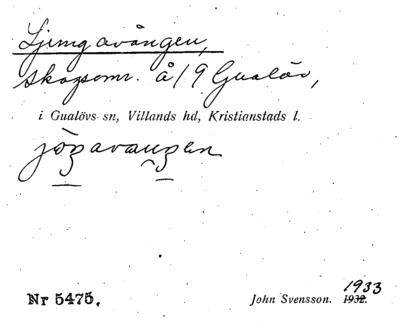 Ljungavången,
skogsomr. å 1/9 Gualöv,
i Gualövs sn, Villands hd, Kristianstads l.
Nr 5475.
John Svensson. 1932. 1933